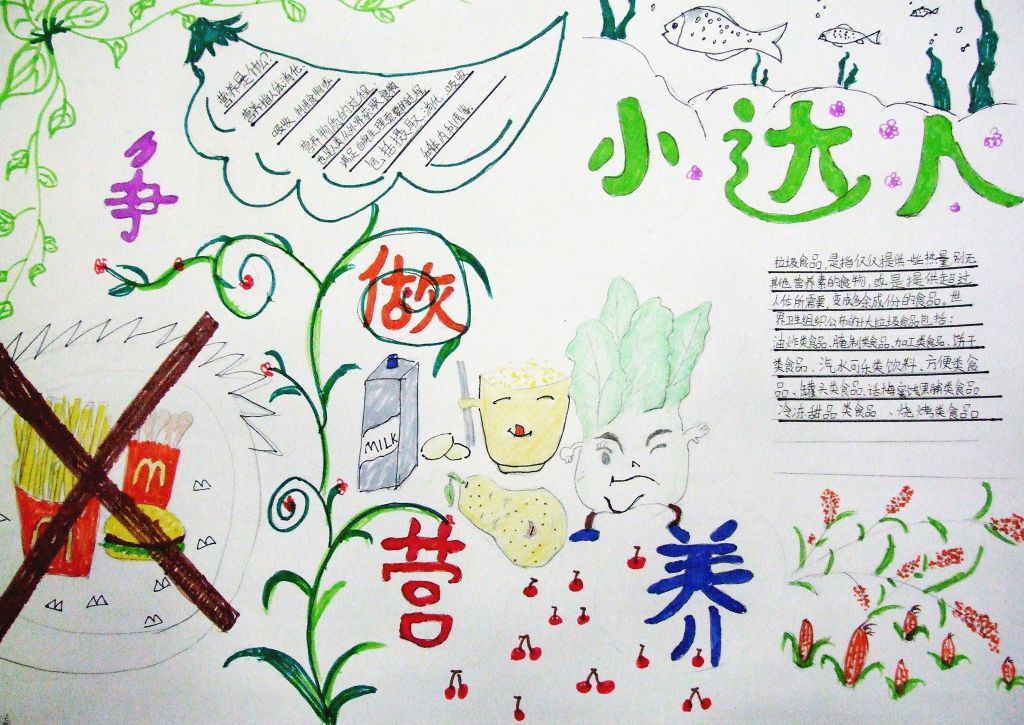 争
做
营
养
小达人
营养是什么:
营养指人体消化、
吸收、利用食物或
营养物质的过程,
也是人类从外界获取食物
满足自身生理需要的过程
包括摄取、消化、吸收
和体内利用等.
MILK
垃圾食品,是指仅仅提供一些热量,别无
其他营养素的食物,或是提供超过
人体所需要,变成多余成份的食品。世
界卫生组织公布的十大垃圾食品包括:
油炸类食品、腌制类食品、加工类食品、饼干
类食品、汽水可乐类饮料、方便类食
品、罐头类食品、话梅蜜饯果脯类食品
冷冻甜品类食品、烧烤类食品。